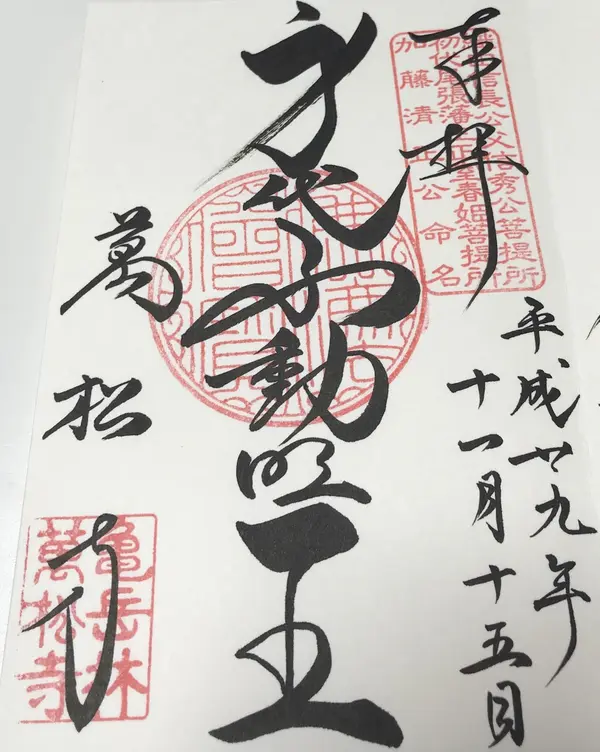 奉拝
織田信長公父信秀公菩提所
初代尾張藩主正室春姫菩提所
加藤清正公命名
平成廿九年
十一月十五日
身代不動明王
萬松寺
亀岳林
萬松寺